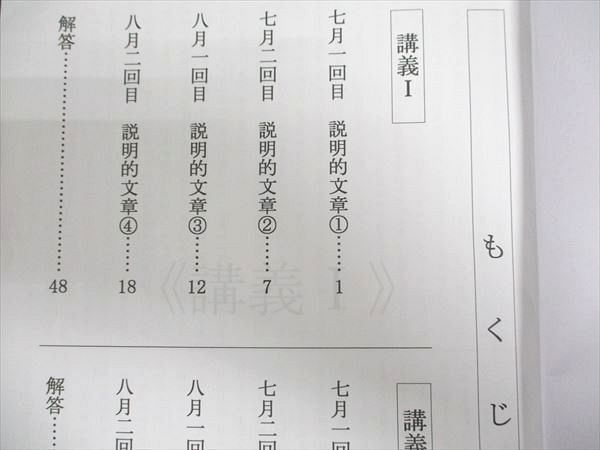 もくじ
講義Ⅰ
七月一回目 説明的文章①………1
七月二回目 説明的文章②………7
八月一回目 説明的文章③………12
八月二回目 説明的文章④………18
解答……………………………48
《講義Ⅰ》
講義
七月一回
七月二回
八月一回
八月二回
解答……